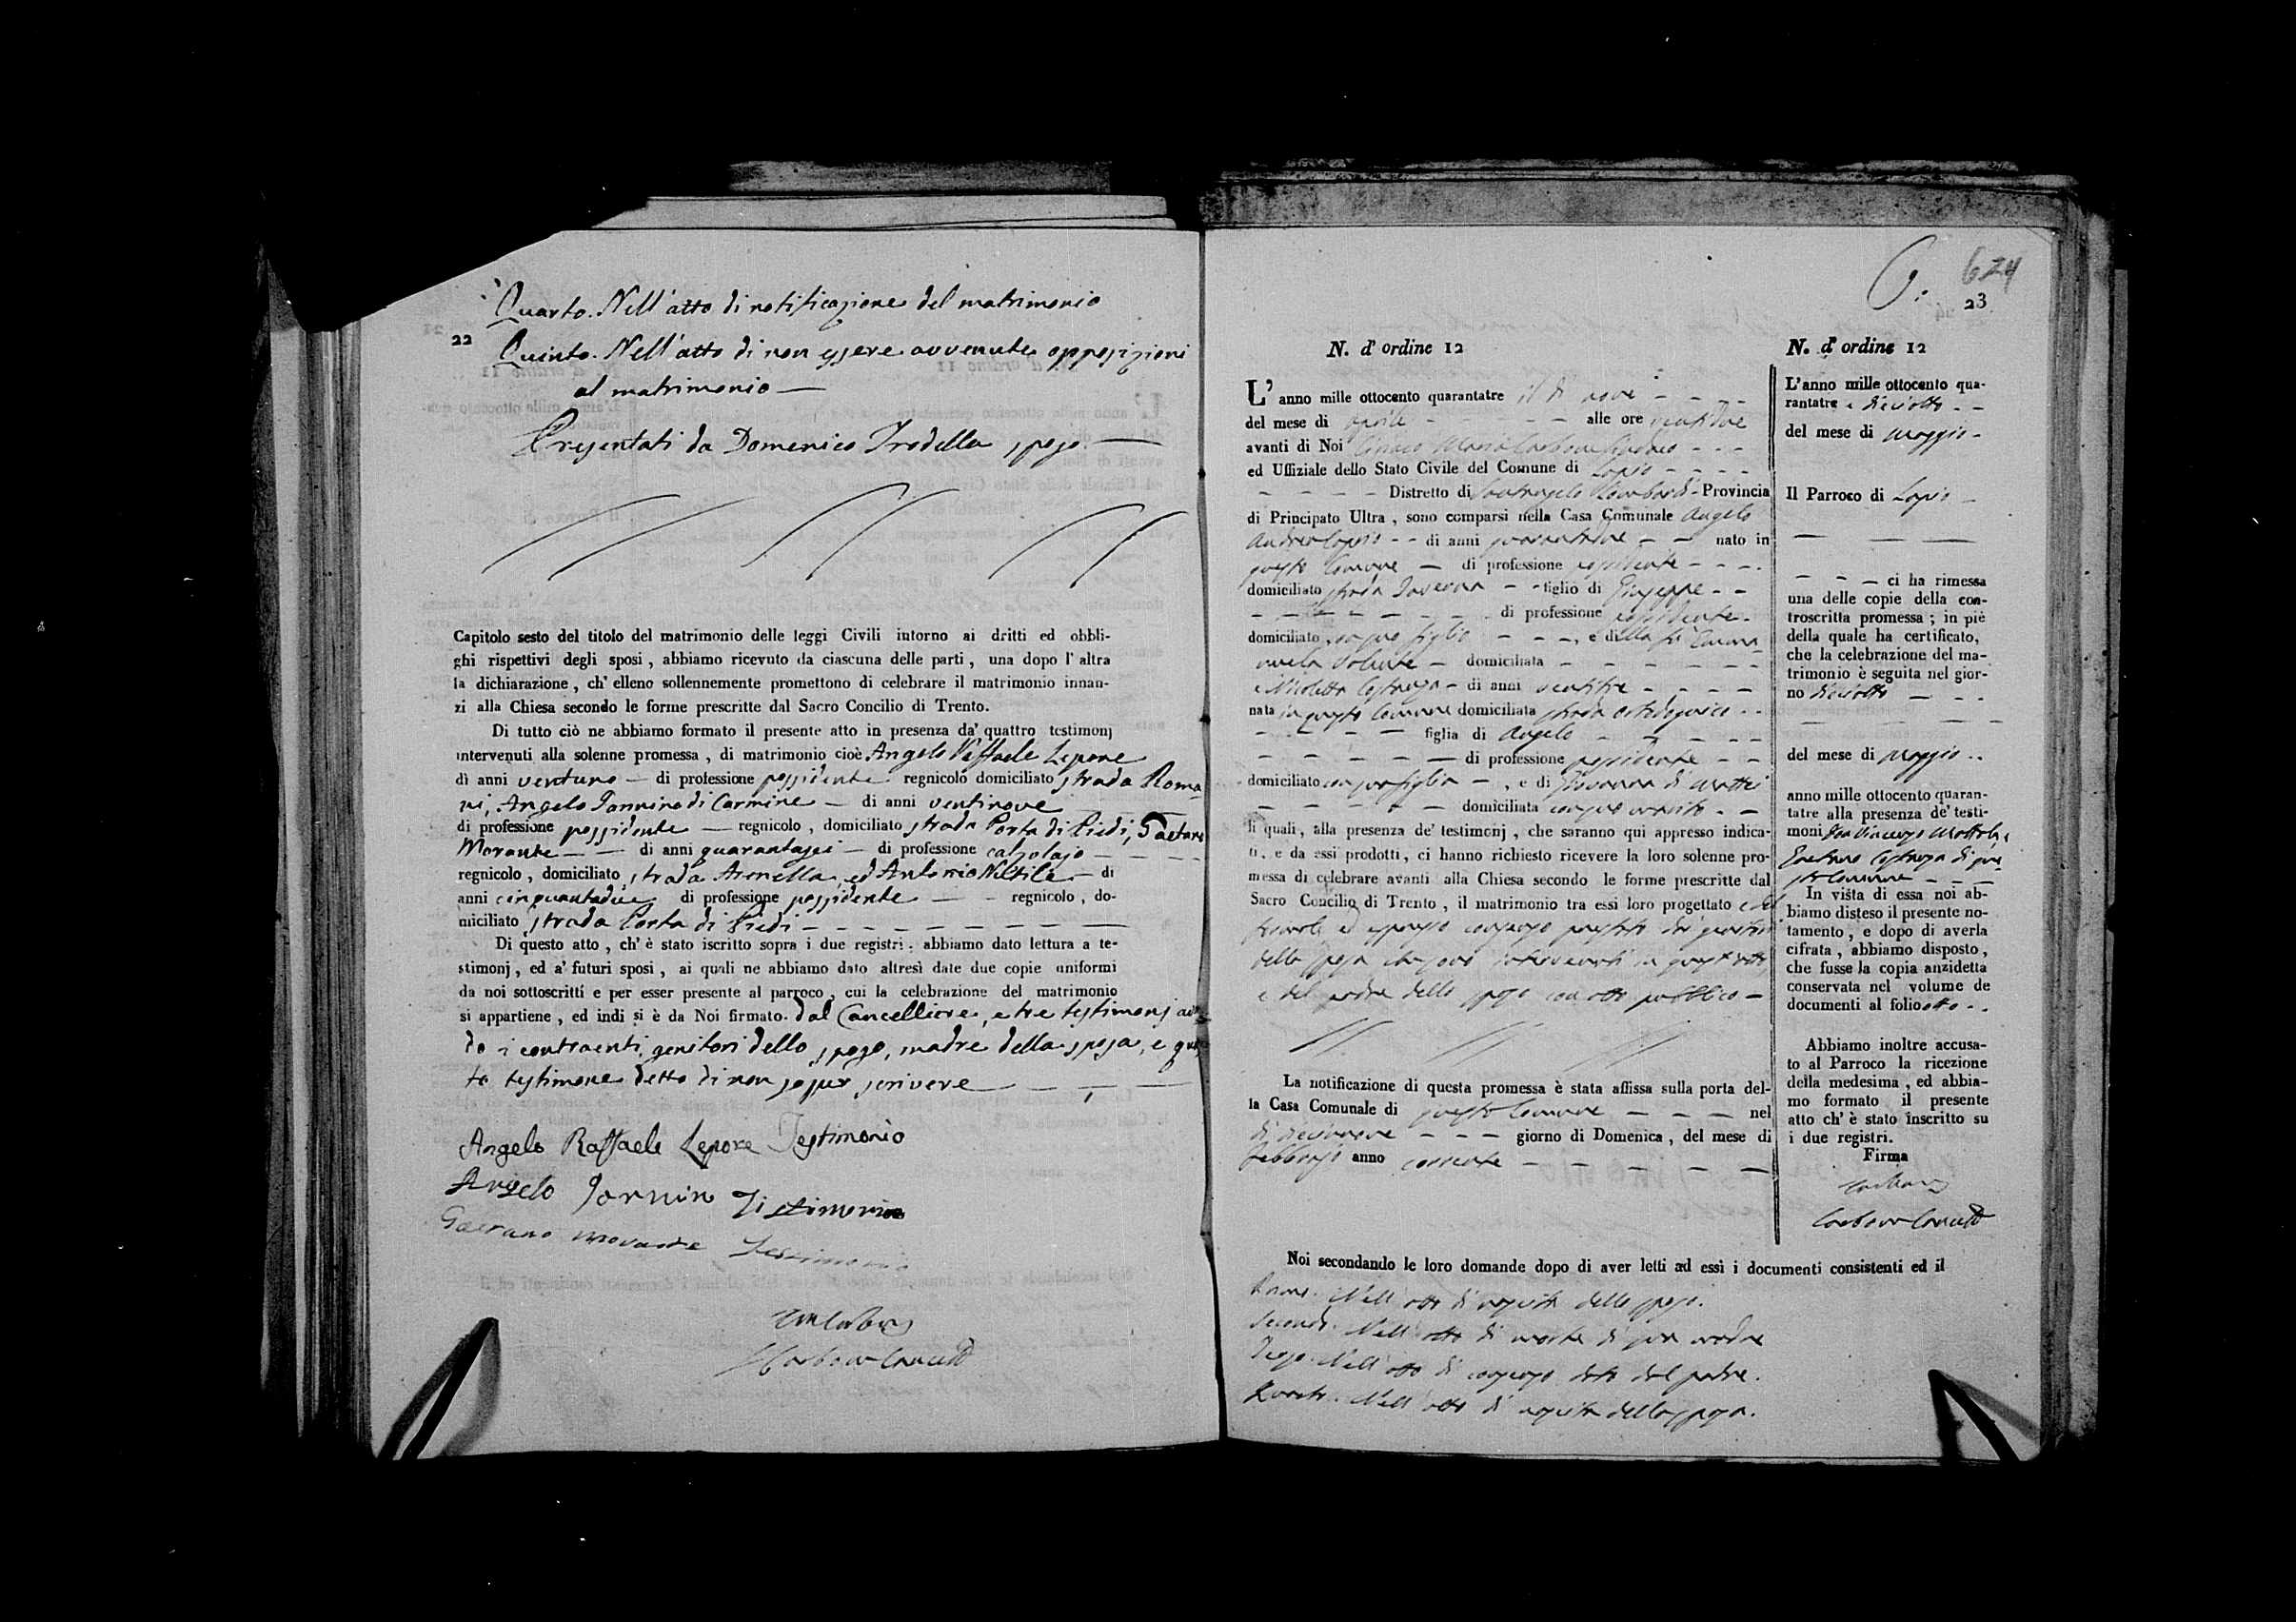 Quarto. Nell'atto di notificazione del matrimonio
22
Quinto. Nell'atto di non essere avvenute opposizioni
al matrimonio —
Presentati da Domenico Trodella sposo —
Capitolo sesto del titolo del matrimonio delle leggi Civili intorno ai dritti ed obbli-
ghi rispettivi degli sposi, abbiamo ricevuto da ciascuna delle parti, una dopo l'altra
la dichiarazione, ch'elleno sollennemente promettono di celebrare il matrimonio innan-
zi alla Chiesa secondo le forme prescritte dal Sacro Concilio di Trento.
Di tutto ciò ne abbiamo formato il presente atto in presenza da' quattro testimonj
intervenuti alla solenne promessa, di matrimonio cioè Angelo Raffaele Lepore
di anni ventuno — di professione possidente regnicolo domiciliato strada Roma-
ni, Angelo Jannino di Carmine — di anni ventinove
di professione possidente — regnicolo, domiciliato strada Porta di Piedi, Gaetano
Morante — — di anni quarantasei — di professione calzolajo — — —
regnicolo, domiciliato strada Aronella, ed Antonio — di
anni cinquantadue di professione possidente — - regnicolo, do-
miciliato strada Porta di Piedi — — — — — — —
Di questo atto, ch'è stato iscritto sopra i due registri: abbiamo dato lettura a te-
stimonj, ed a' futuri sposi, ai quali ne abbiamo dato altresì date due copie uniformi
da noi sottoscritti e per esser presente al parroco, cui la celebrazione del matrimonio
si appartiene, ed indi si è da Noi firmato. dal Cancelliere, e tre testimonj aven-
do i contraenti, genitori dello sposo, madre della sposa, e quar-
to testimone detto di non saper scrivere — — — —
Angelo Raffaele Lepore Testimonio
Angelo Jannino Testimonio
Gaetano Morante Testimonio
Carbone Canc.
624
23
N. d' ordine 12
L' anno mille ottocento quarantatre il dì nove - - - -
del mese di aprile - - - - - alle ore ventidue
avanti di Noi Maria Carbone Sindaco - - -
ed Uffiziale dello Stato Civile del Comune di Lapio - - - -
- - - - Distretto di Santangelo Lombardi - Provincia
di Principato Ultra, sono comparsi nella Casa Comunale Angelo
Andrea - - di anni quarantadue - - nato in
questo Comune — di professione possidente - - -
domiciliato strada Taverna - - figlio di Giuseppe - -
- - - - - - - di professione possidente -
domiciliato con suo figlio - - -, e della fu Emma-
nuela Volente - domiciliata - - - - - -
e Nicoletta Costanza - di anni ventitre - - - -
nata in questo Comune domiciliata strada - -
- - - - figlia di Angelo - - - - - -
- - - - - di professione possidente - - -
domiciliato con sua figlia -, e di Giovanna di Mattei
- - - - - domiciliata con suo marito - -
li quali, alla presenza de' testimonj, che saranno qui appresso indica-
ti, e da essi prodotti, ci hanno richiesto ricevere la loro solenne pro-
messa di celebrare avanti alla Chiesa secondo le forme prescritte dal
Sacro Concilio di Trento, il matrimonio tra essi loro progettato e del
formale ed espresso consenso prestato dai genitori
della sposa che sono intervenuti in quest'atto
e del padre dello sposo con atto pubblico —
La notificazione di questa promessa è stata affissa sulla porta del-
la Casa Comunale di questo Comune - - - - nel
dì diecinove - - - giorno di Domenica, del mese di
Febbrajo anno corrente - - - - - -
Noi secondando le loro domande dopo di aver letti ad essi i documenti consistenti ed il
Primo. Nell'atto di nascita dello sposo.
Secondo. Nell'atto di morte di sua madre
Terzo. Nell'atto di consenso dato dal padre.
Quarto. Nell'atto di nascita della sposa.
N. d' ordine 12
L'anno mille ottocento qua-
rantatre e dieciotto - -
del mese di Maggio -
Il Parroco di Lapio -
— — —
- - - ci ha rimessa
una delle copie della con-
troscritta promessa; in piè
della quale ha certificato,
che la celebrazione del ma-
trimonio è seguita nel gior-
no dieciotto - -
del mese di Maggio - -
anno mille ottocento quaran-
tatre alla presenza de' testi-
moni Don Vincenzo Mottola, e
Gaetano Costanza di que-
sto Comune - - -
In vista di essa noi ab-
biamo disteso il presente no-
tamento, e dopo di averla
cifrata, abbiamo disposto,
che fusse la copia anzidetta
conservata nel volume de
documenti al folio otto - -
Abbiamo inoltre accusa-
to al Parroco la ricezione
della medesima, ed abbia-
mo formato il presente
atto ch'è stato inscritto su
i due registri.
Firma
Carbone
Carbone Canc.